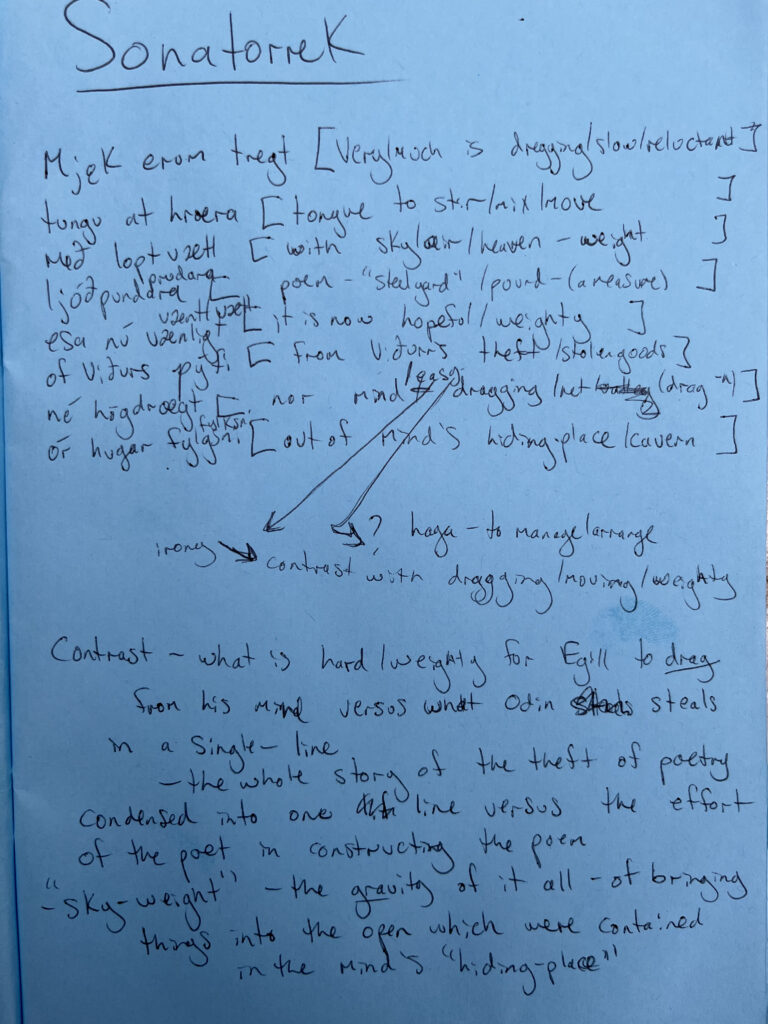 Sonatorrek
Mjek erom tregt [Very/Much is dragging/slow/reluctant]
tungu at hroera [tongue to stir/mix/move ]
með loptvætt [ with sky/air/heaven - weight ]
prudara
ljóðpundara [ poem - "steelyard" / pound - (a measure) ]
vaentl/vætt
esa nú vænligt [ it is now hopeful/weighty ]
of Viðurs þýfi [ from Viðurr's theft/stolengoods ]
né hógdroegt [ nor mind /easy dragging/net (drag-n) ]
fylksni
ór hugar fylgsni [ out of mind's hiding-place/cavern ]
? haga - to manage/arrange
irony
contrast with dragging/moving/weighty
Contrast - what is hard/weighty for Egill to drag
from his mind versus what Odin steals
in a single-line
- the whole story of the theft of poetry
condensed into one line versus the effort
of the poet in constructing the poem
- "sky-weight" - the gravity of it all - of bringing
things into the open which were contained
in the mind's "hiding-place"